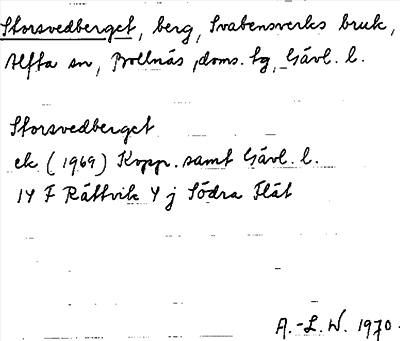 Storsvedberget, berg, Svabensverks bruk,
Alfta sn, Bollnäs doms. tg, Gävl. l.
Storsvedberget
ek (1969) Kopp. samt Gävl. l.
14 F Rättvik 4 j Södra Flät
A.-L. W. 1970.